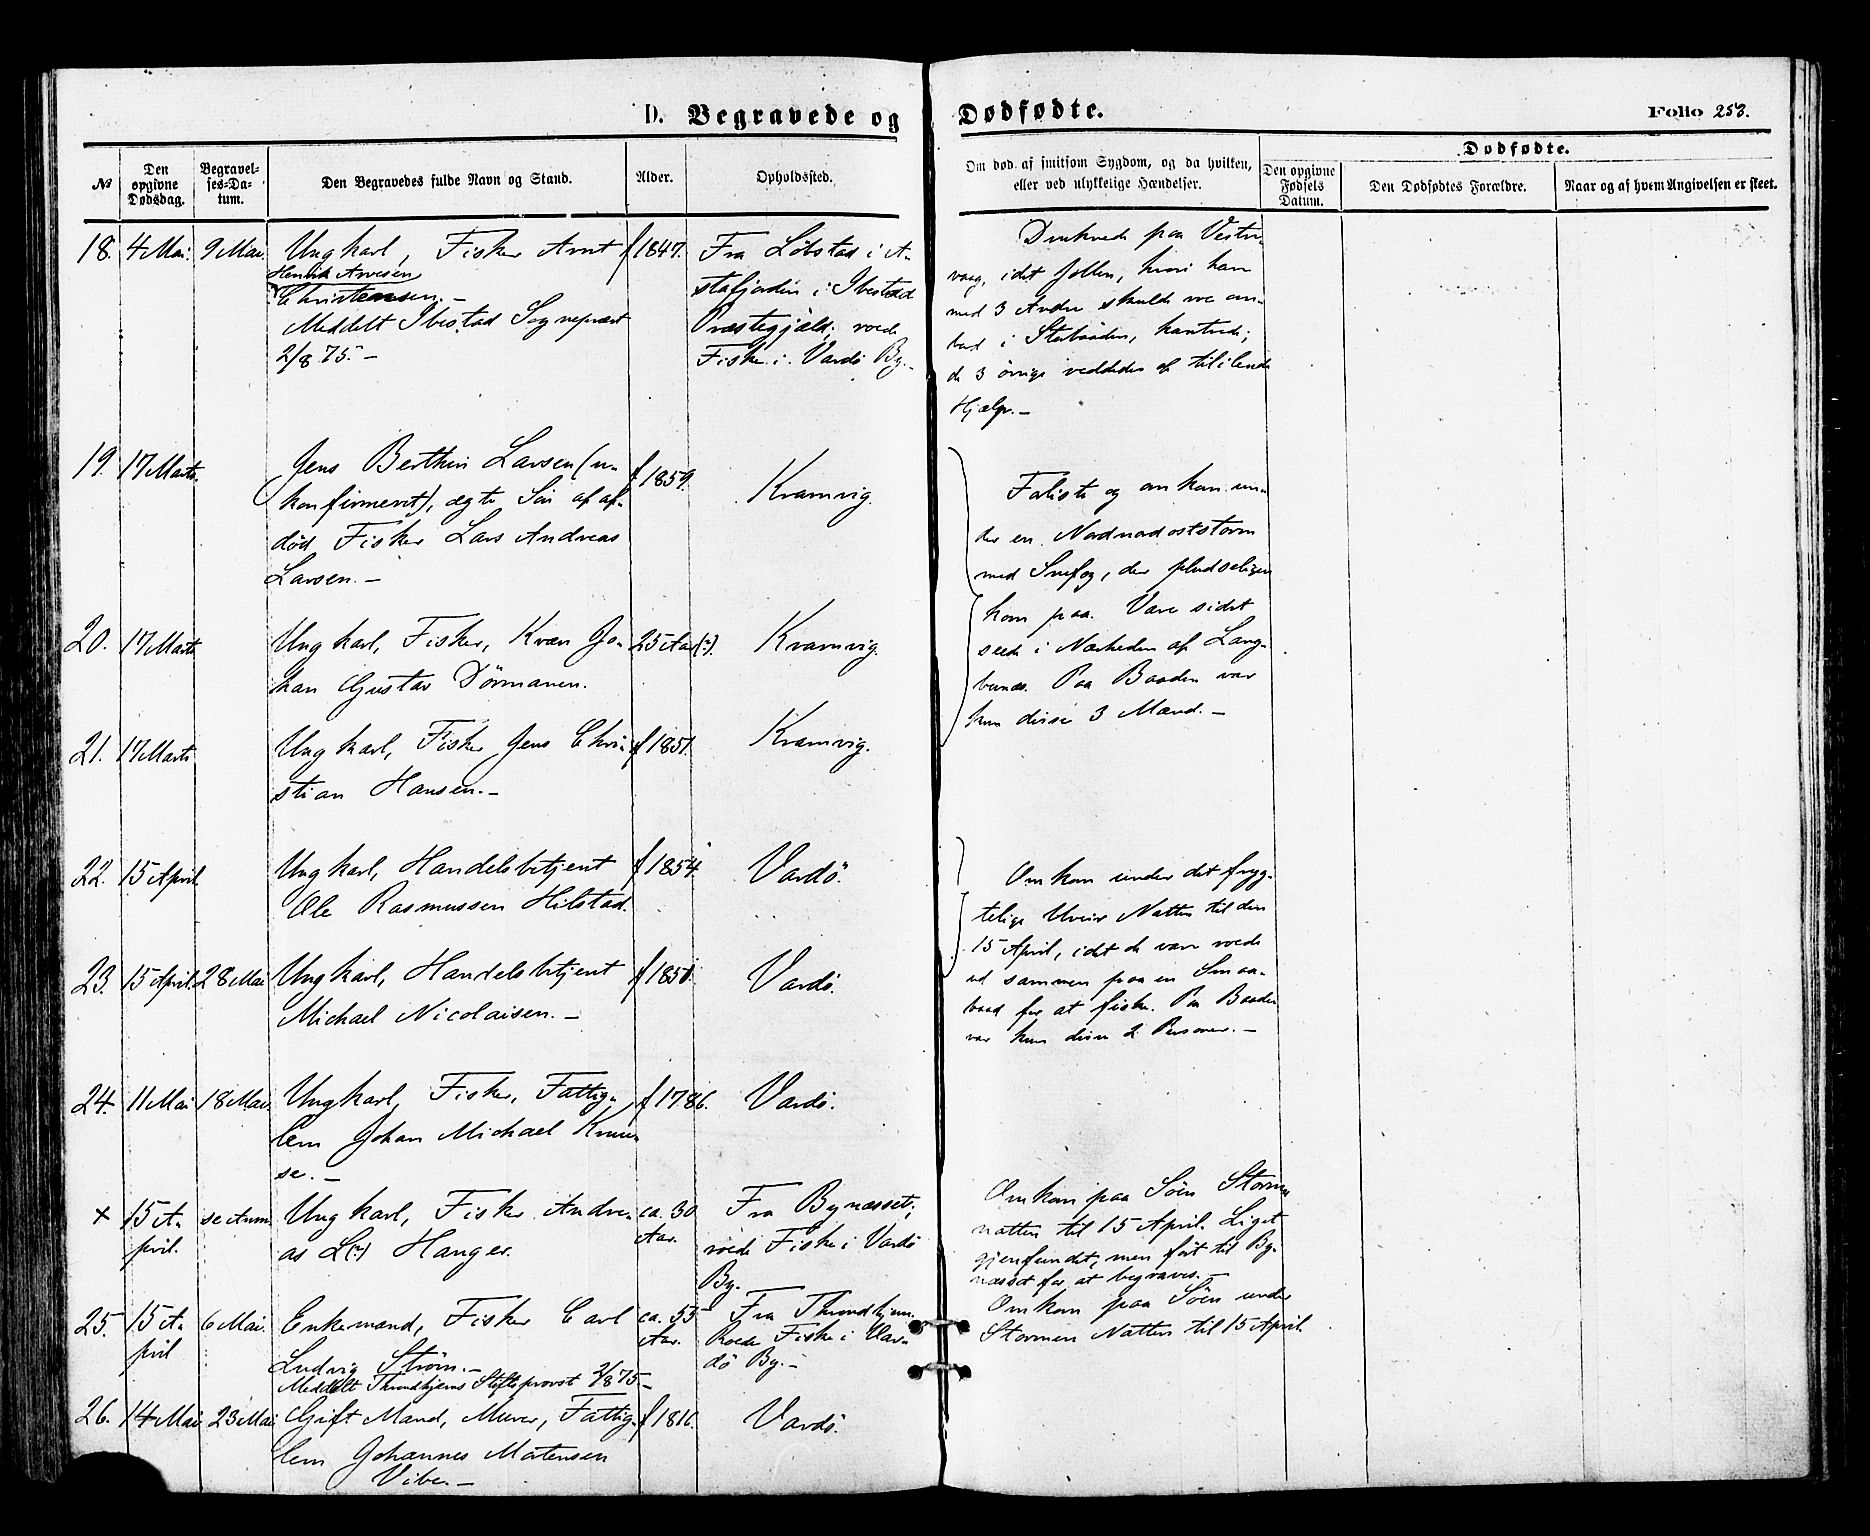 D. Begravede og Dødfødte.
Folio 253.
№
Den opgivne Dødsdag.
Begravel-ses-Da-tum.
Den Begravedes fulde Navn og Stand.
Alder.
Opholdssted.
Om død af smitsom Sygdom, og da hvilken, eller ved ulykkelige Hændelser.
Dødfødte.
Den opgivne Fødsels Datum.
Den Dødfødtes Forældre.
Naar og af hvem Angivelsen er skeet.
18. 4 Mai. 9 Mai. Ungkarl, Fisker Arnt f 1847. Fra Löbstad i A-
Henrik Arvesen
Christensen. — stafjorden i Ibestad
Meddelt Ibestad Sognepræst Præstegjæld; roede
2/8 75. — Fiske i Vardö By. —
Druknede paa Vester-
vaag, idet Jollen, hvori han
med 3 Andre skulde roe om-
bord i Storbaaden, kantrede;
de 3 övrige reddedes af tililende
Hjælp. —
19. 17 Marts. Jens Berthin Larsen (u- f 1859. Kramvig.
konfirmeret), ægte Sön af af-
död Fisker Lars Andreas
Larsen. —
20. 17 Marts Ungkarl, Fisker, Kvæn Jo- 25 Aar (?). Kramvig.
han Gustav Törmänen.
21. 17 Marts Ungkarl, Fisker Jens Chri- f 1851. Kramvig.
stian Hansen. —
Forliste og omkom un-
der en Nordnordoststorm
med Snefog, der pludseligen
kom paa. Vare sidst
seede i Nærheden af Lang-
bunes. Paa Baaden var
kun disse 3 Mænd. —
22. 15 April. Ungkarl, Handelsbetjent f 1854. Vardö.
Ole Rasmussen Hilstad.
23. 15 April. 28 Mai Ungkarl, Handelsbetjent f 1851. Vardö.
Michael Nicolaisen. —
Omkom under det fryg-
telige Uveir Natten til den
15 April, idet de vare roede
ud sammen paa en Smaa-
baad for at fiske. Paa Baaden
var kun disse 2 Personer. —
24. 11 Mai 18 Mai. Ungkarl, Fisker, Fattig- f 1786. Vardö.
lem Johan Michael Kruu-
se. —
× 15 A- se Anm. Ungkarl, Fisker Andre- ca. 30 Fra Bynæsset;
pril. as L(?) Hanger. Aar. roede Fiske i Vardö
By.
Omkom paa Söen Storm-
natten til 15 April. Liget
gjenfundet, men fört til By-
næsset for at begraves. —
25. 15 A- 6 Mai. Enkemand, Fisker Carl ca. 55 Fra Throndhjem.
pril Ludvig Ström. — Aar. Roede Fiske i Var-
Meddelt Throndhjems Stiftsprovst 2/8 75. — dö By. —
Omkom paa Söen under
Stormen Natten til 15 April.
26. 14 Mai 23 Mai Gift Mand, Murer, Fattig- f 1816. Vardö.
lem Johannes Mortensen
Vibe. —